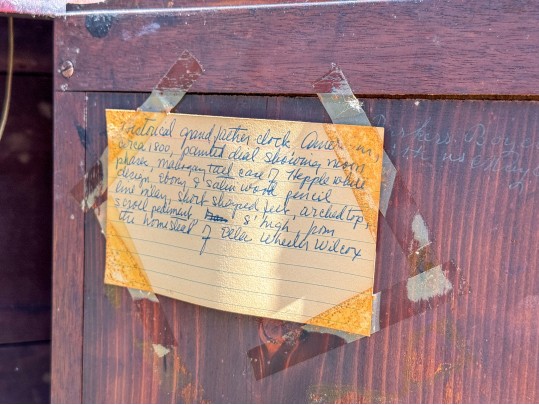 Historical grandfather clock, American,
circa 1800, painted dial showing moon
phase, mahogany tall case of Hepplewhite
design. Ebony & satin wood pencil
line inlay, short shaped feet, arched top,
scroll pediment, 8' high from
the homestead of Ella Wheeler Wilcox